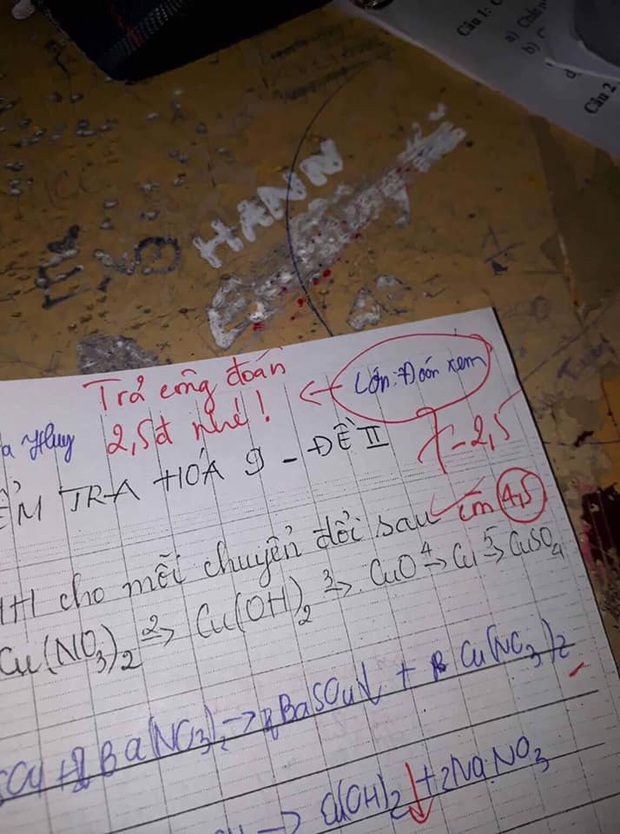 Câu 1:
a)
b) C
Câu 2
HANN
Trả công đoán
2,5đ nhé!
← Lớn: Đoán xem
a Huy
7-2,5
ỂM TRA HÓA 9 - ĐỀ II
cho mỗi chuyển đổi sau còn 4,5
Cu(NO3)2 2→ Cu(OH)2 3→ CuO 4→ Cu 5→ CuSO4
Ba(NO3)2 → BaSO4↓ + Cu(NO3)2
→ Cu(OH)2↓ + 2NaNO3